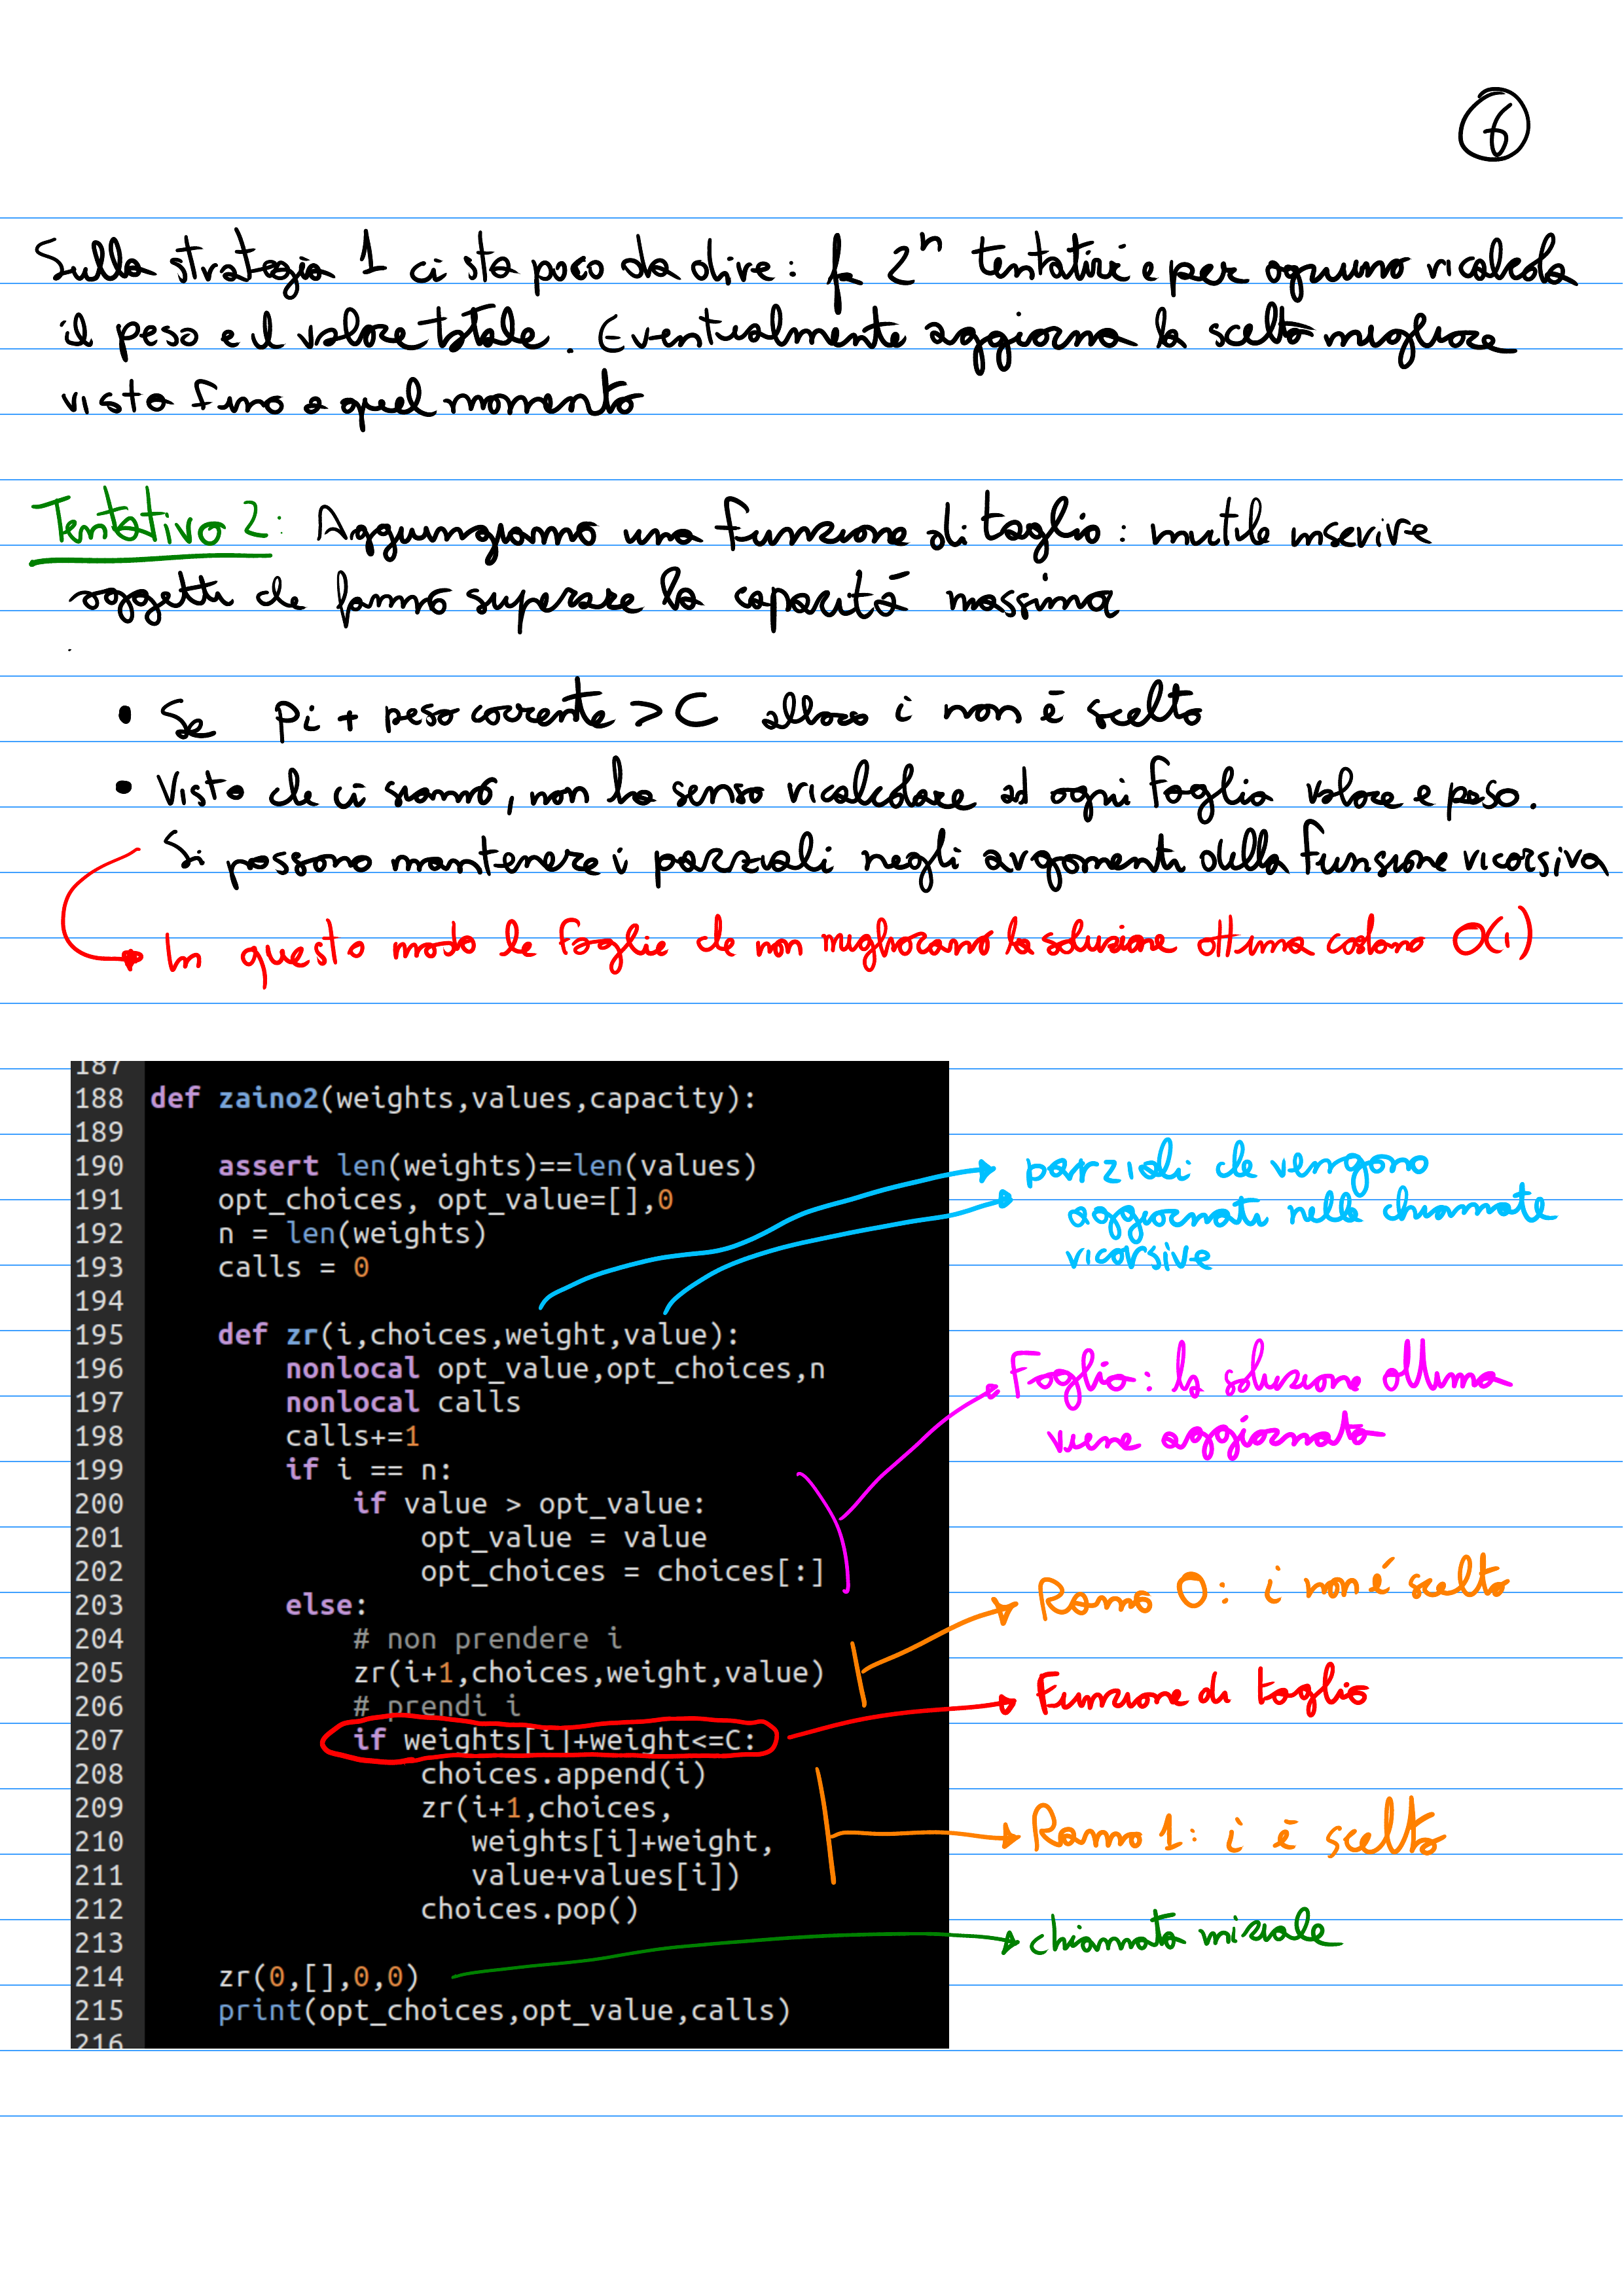 6
Sulla strategia 1 ci sta poco da dire: fa 2^n tentativi e per ognuno ricalcola
il peso e il valore totale. Eventualmente aggiorna la scelta migliore
vista fino a quel momento
Tentativo 2: Aggiungiamo una funzione di taglio: inutile inserire
oggetti che fanno superare la capacità massima
• Se pi + peso corrente > C allora i non è scelto
• Visto che ci siamo, non ha senso ricalcolare ad ogni foglia valore e peso.
Si possono mantenere i parziali negli argomenti della funzione ricorsiva
In questo modo le foglie che non migliorano la soluzione ottima costano O(1)
187
188 def zaino2(weights,values,capacity):
189
190 assert len(weights)==len(values)
191 opt_choices, opt_value=[],0
192 n = len(weights)
193 calls = 0
194
195 def zr(i,choices,weight,value):
196 nonlocal opt_value,opt_choices,n
197 nonlocal calls
198 calls+=1
199 if i == n:
200 if value > opt_value:
201 opt_value = value
202 opt_choices = choices[:]
203 else:
204 # non prendere i
205 zr(i+1,choices,weight,value)
206 # prendi i
207 if weights[i]+weight<=C:
208 choices.append(i)
209 zr(i+1,choices,
210 weights[i]+weight,
211 value+values[i])
212 choices.pop()
213
214 zr(0,[],0,0)
215 print(opt_choices,opt_value,calls)
216
parziali che vengono
aggiornati nelle chiamate
ricorsive
Foglia: la soluzione ottima
viene aggiornata
Ramo 0: i non è scelto
Funzione di taglio
Ramo 1: i è scelto
chiamata iniziale